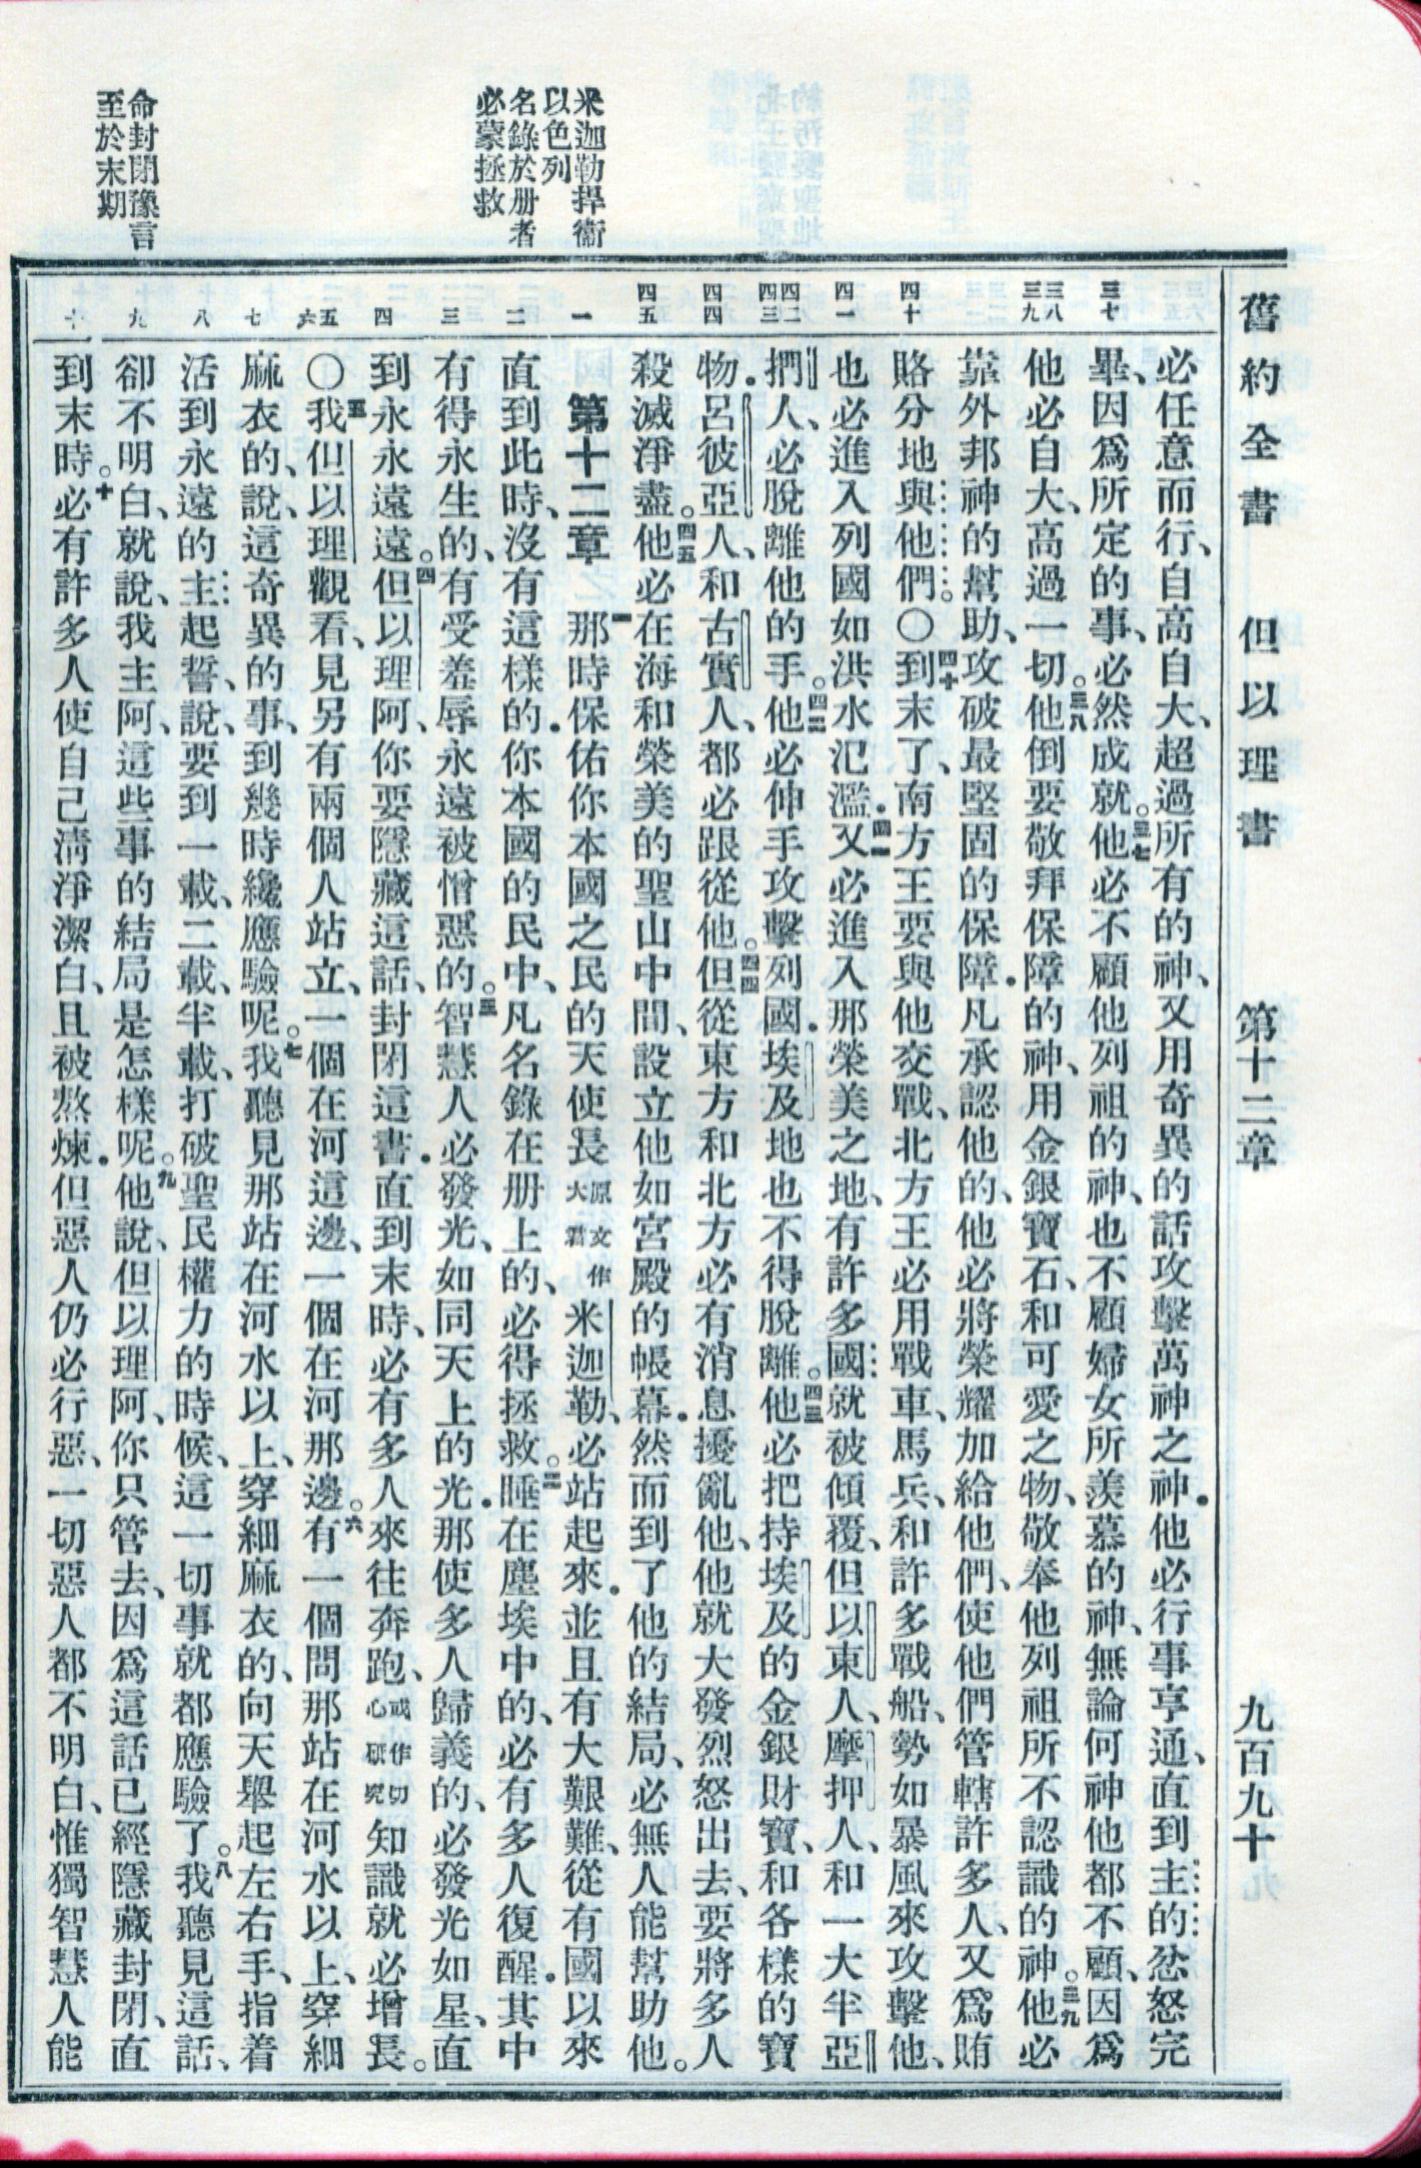 舊約全書 但以理書 第十二章 九百九十
米迦勒捍衞
以色列
名錄於册者
必蒙拯救
命封閉豫言
至於末期
三七 三八 三九 四十 四一 四二 四三 四四 四五 一 二 三 四 五 六 七 八 九 十
必任意而行、自高自大、超過所有的神、又用奇異的話攻擊萬神之神．他必行事亨通、直到主的忿怒完
畢、因爲所定的事、必然成就。三七他必不顧他列祖的神、也不顧婦女所羨慕的神、無論何神他都不顧、因爲
他必自大、高過一切。三八他倒要敬拜保障的神、用金銀寶石、和可愛之物、敬奉他列祖所不認識的神。三九他必
靠外邦神的幫助、攻破最堅固的保障．凡承認他的、他必將榮耀加給他們、使他們管轄許多人、又爲賄
賂分地與他們。〇四十到末了、南方王要與他交戰、北方王必用戰車、馬兵、和許多戰船、勢如暴風來攻擊他、
也必進入列國如洪水氾濫．四一又必進入那榮美之地、有許多國就被傾覆、但以東人、摩押人、和一大半亞
捫人、必脫離他的手。四二他必伸手攻擊列國．埃及地也不得脫離。四三他必把持埃及的金銀財寶、和各樣的寶
物．呂彼亞人、和古實人、都必跟從他。四四但從東方和北方必有消息擾亂他、他就大發烈怒出去、要將多人
殺滅淨盡。四五他必在海和榮美的聖山中間、設立他如宮殿的帳幕．然而到了他的結局、必無人能幫助他。
第十二章 一那時保佑你本國之民的天使長原文作大君米迦勒、必站起來．並且有大艱難、從有國以來
直到此時、沒有這樣的．你本國的民中、凡名錄在册上的、必得拯救。二睡在塵埃中的、必有多人復醒．其中
有得永生的、有受羞辱永遠被憎惡的。三智慧人必發光、如同天上的光．那使多人歸義的、必發光如星、直
到永永遠遠。四但以理阿、你要隱藏這話、封閉這書．直到末時、必有多人來往奔跑、或作切心研究知識就必增長。
〇五我但以理觀看、見另有兩個人站立、一個在河這邊、一個在河那邊。六有一個問那站在河水以上、穿細
麻衣的、說、這奇異的事、到幾時纔應驗呢。七我聽見那站在河水以上、穿細麻衣的、向天舉起左右手、指着
活到永遠的主起誓、說、要到一載、二載、半載、打破聖民權力的時候、這一切事就都應驗了。八我聽見這話、
卻不明白、就說、我主阿、這些事的結局是怎樣呢。九他說、但以理阿、你只管去、因爲這話已經隱藏封閉、直
到末時。十必有許多人使自己淸淨潔白、且被熬煉．但惡人仍必行惡、一切惡人都不明白、惟獨智慧人能